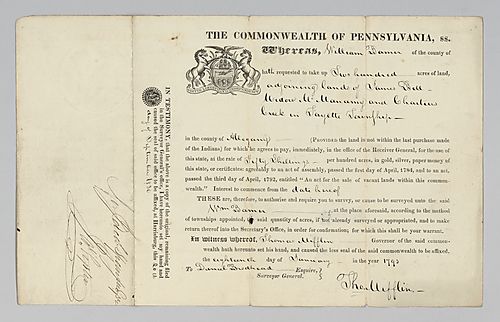 THE COMMONWEALTH OF PENNSYLVANIA, ss.
Whereas, William Barner of the county of
hath requested to take up Two hundred acres of land,
adjoining lands of James Bell
Widow McManamy and Chartiers
Creek in Fayette Township
in the county of Allegany (PROVIDED the land is not within the last purchase made
of the Indians) for which he agrees to pay, immediately, in the office of the Receiver General, for the use of
this state, at the rate of Fifty Shillings per hundred acres, in gold, silver, paper money of
this state, or certificates agreeably to an act of assembly, passed the first day of April, 1784, and to an act,
passed the third day of April, 1792, entitled "An act for the sale of vacant lands within this common-
wealth." Interest to commence from the date hereof
THESE are, therefore, to authorise and require you to survey, or cause to be surveyed unto the said
Wm Barner at the place aforesaid, according to the method
of townships appointed, said quantity of acres, if not already surveyed or appropriated, and to make
return thereof into the Secretary's Office, in order for confirmation; for which this shall be your warrant.
In witness whereof, Thomas Mifflin Governor of the said common-
wealth hath hereunto set his hand, and caused the less seal of the said commonwealth to be affixed,
the eighteenth day of January in the year 1793
To Daniel Brodhead Esquire,
Surveyor General.
Tho Mifflin
IN TESTIMONY, that the above is a copy of the original, remaining filed
in the Surveyor General's office, I have hereunto set my hand and
caused the seal of said office to be affixed, at Harrisburg, this
day of September 18